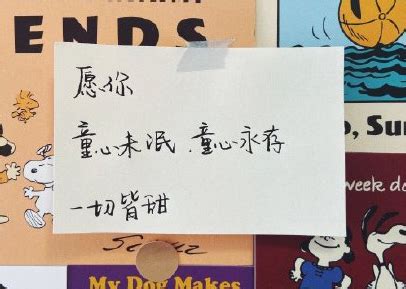 ENDS
愿你
童心未泯.童心永存
一切皆甜
o, Su
week d
My Dog Makes